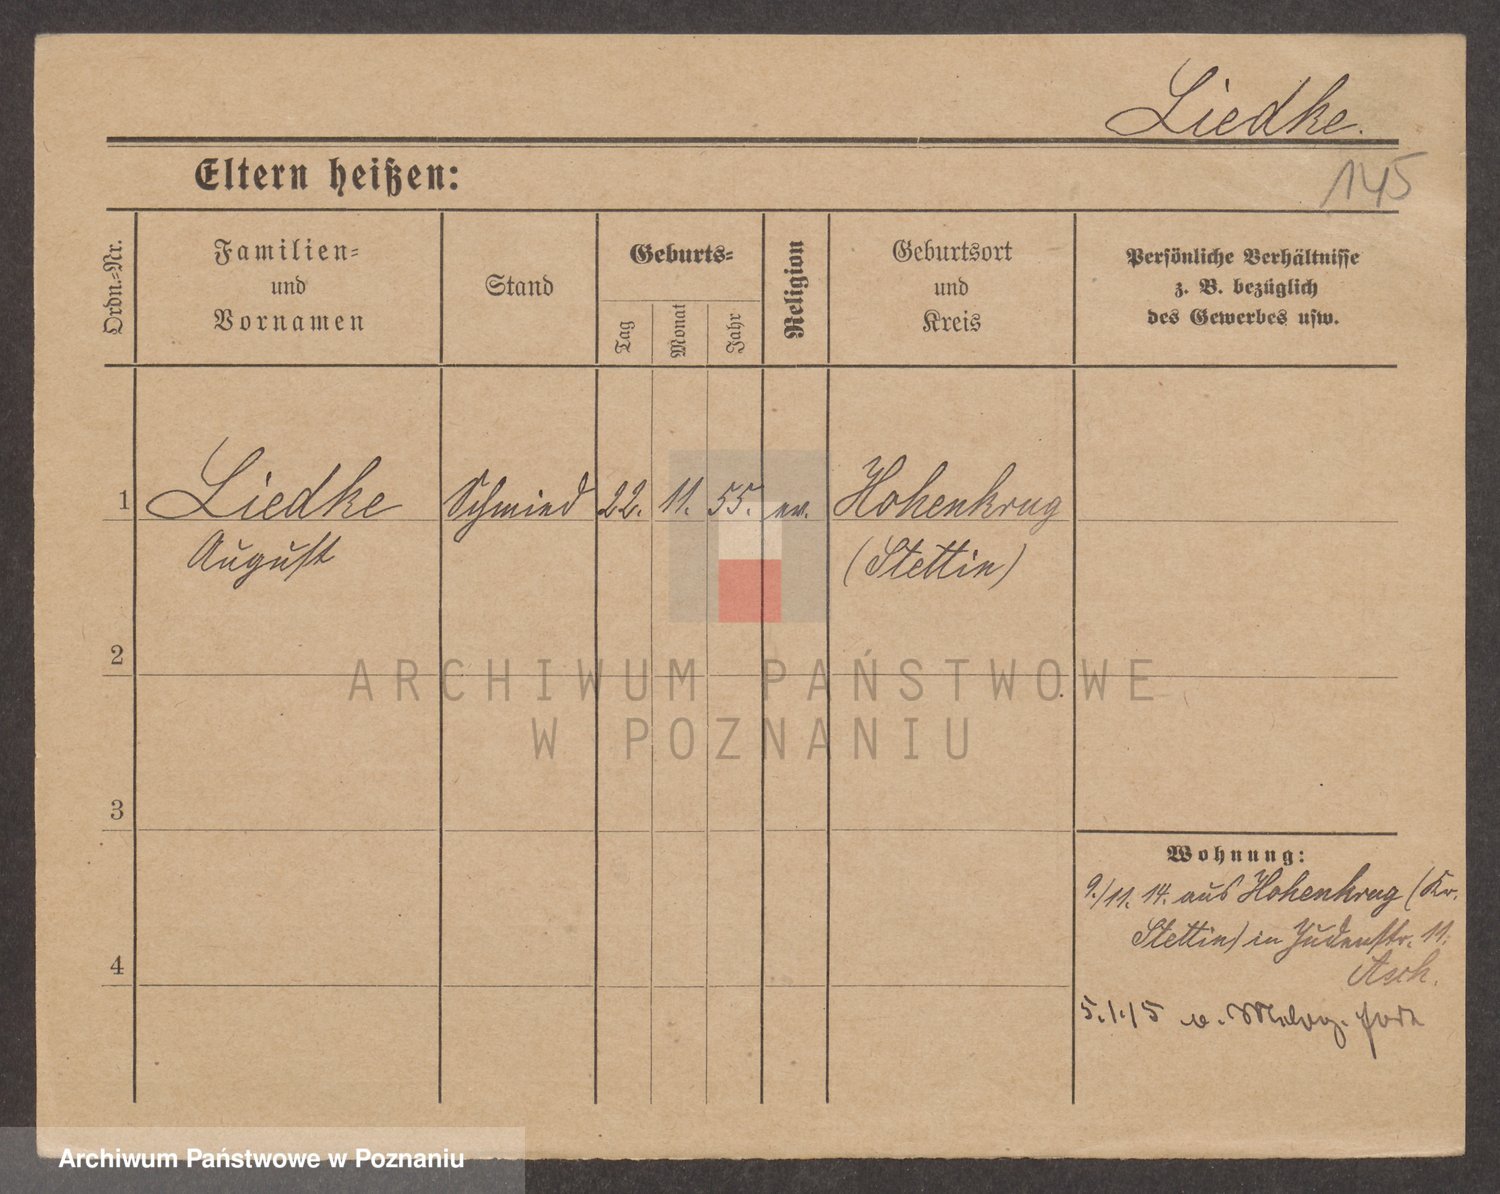 Liedke.
145
Eltern heißen:
Ordn.-Nr.
Familien-
und
Vornamen
Stand
Geburts-
Tag
Monat
Jahr
Religion
Geburtsort
und
Kreis
Persönliche Verhältnisse
z. B. bezüglich
des Gewerbes usw.
1 Liedke Schmied 22. 11. 55. ev. Hohenkrug
August (Stettin)
2
3
4
ARCHIWUM PAŃSTWOWE
W POZNANIU
Wohnung:
9./11. 14. aus Hohenkrug (Kr.
Stettin) in Judenstr. 11.
Asch.
5.1.15 o. fort
Archiwum Państwowe w Poznaniu